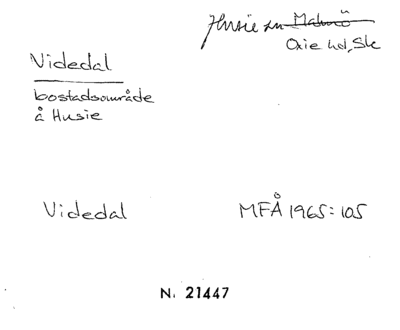 Husie sn Malmö
Oxie hd, Sk
Videdal
bostadsområde
å Husie
Videdal MFÅ 1965: 105
N. 21447